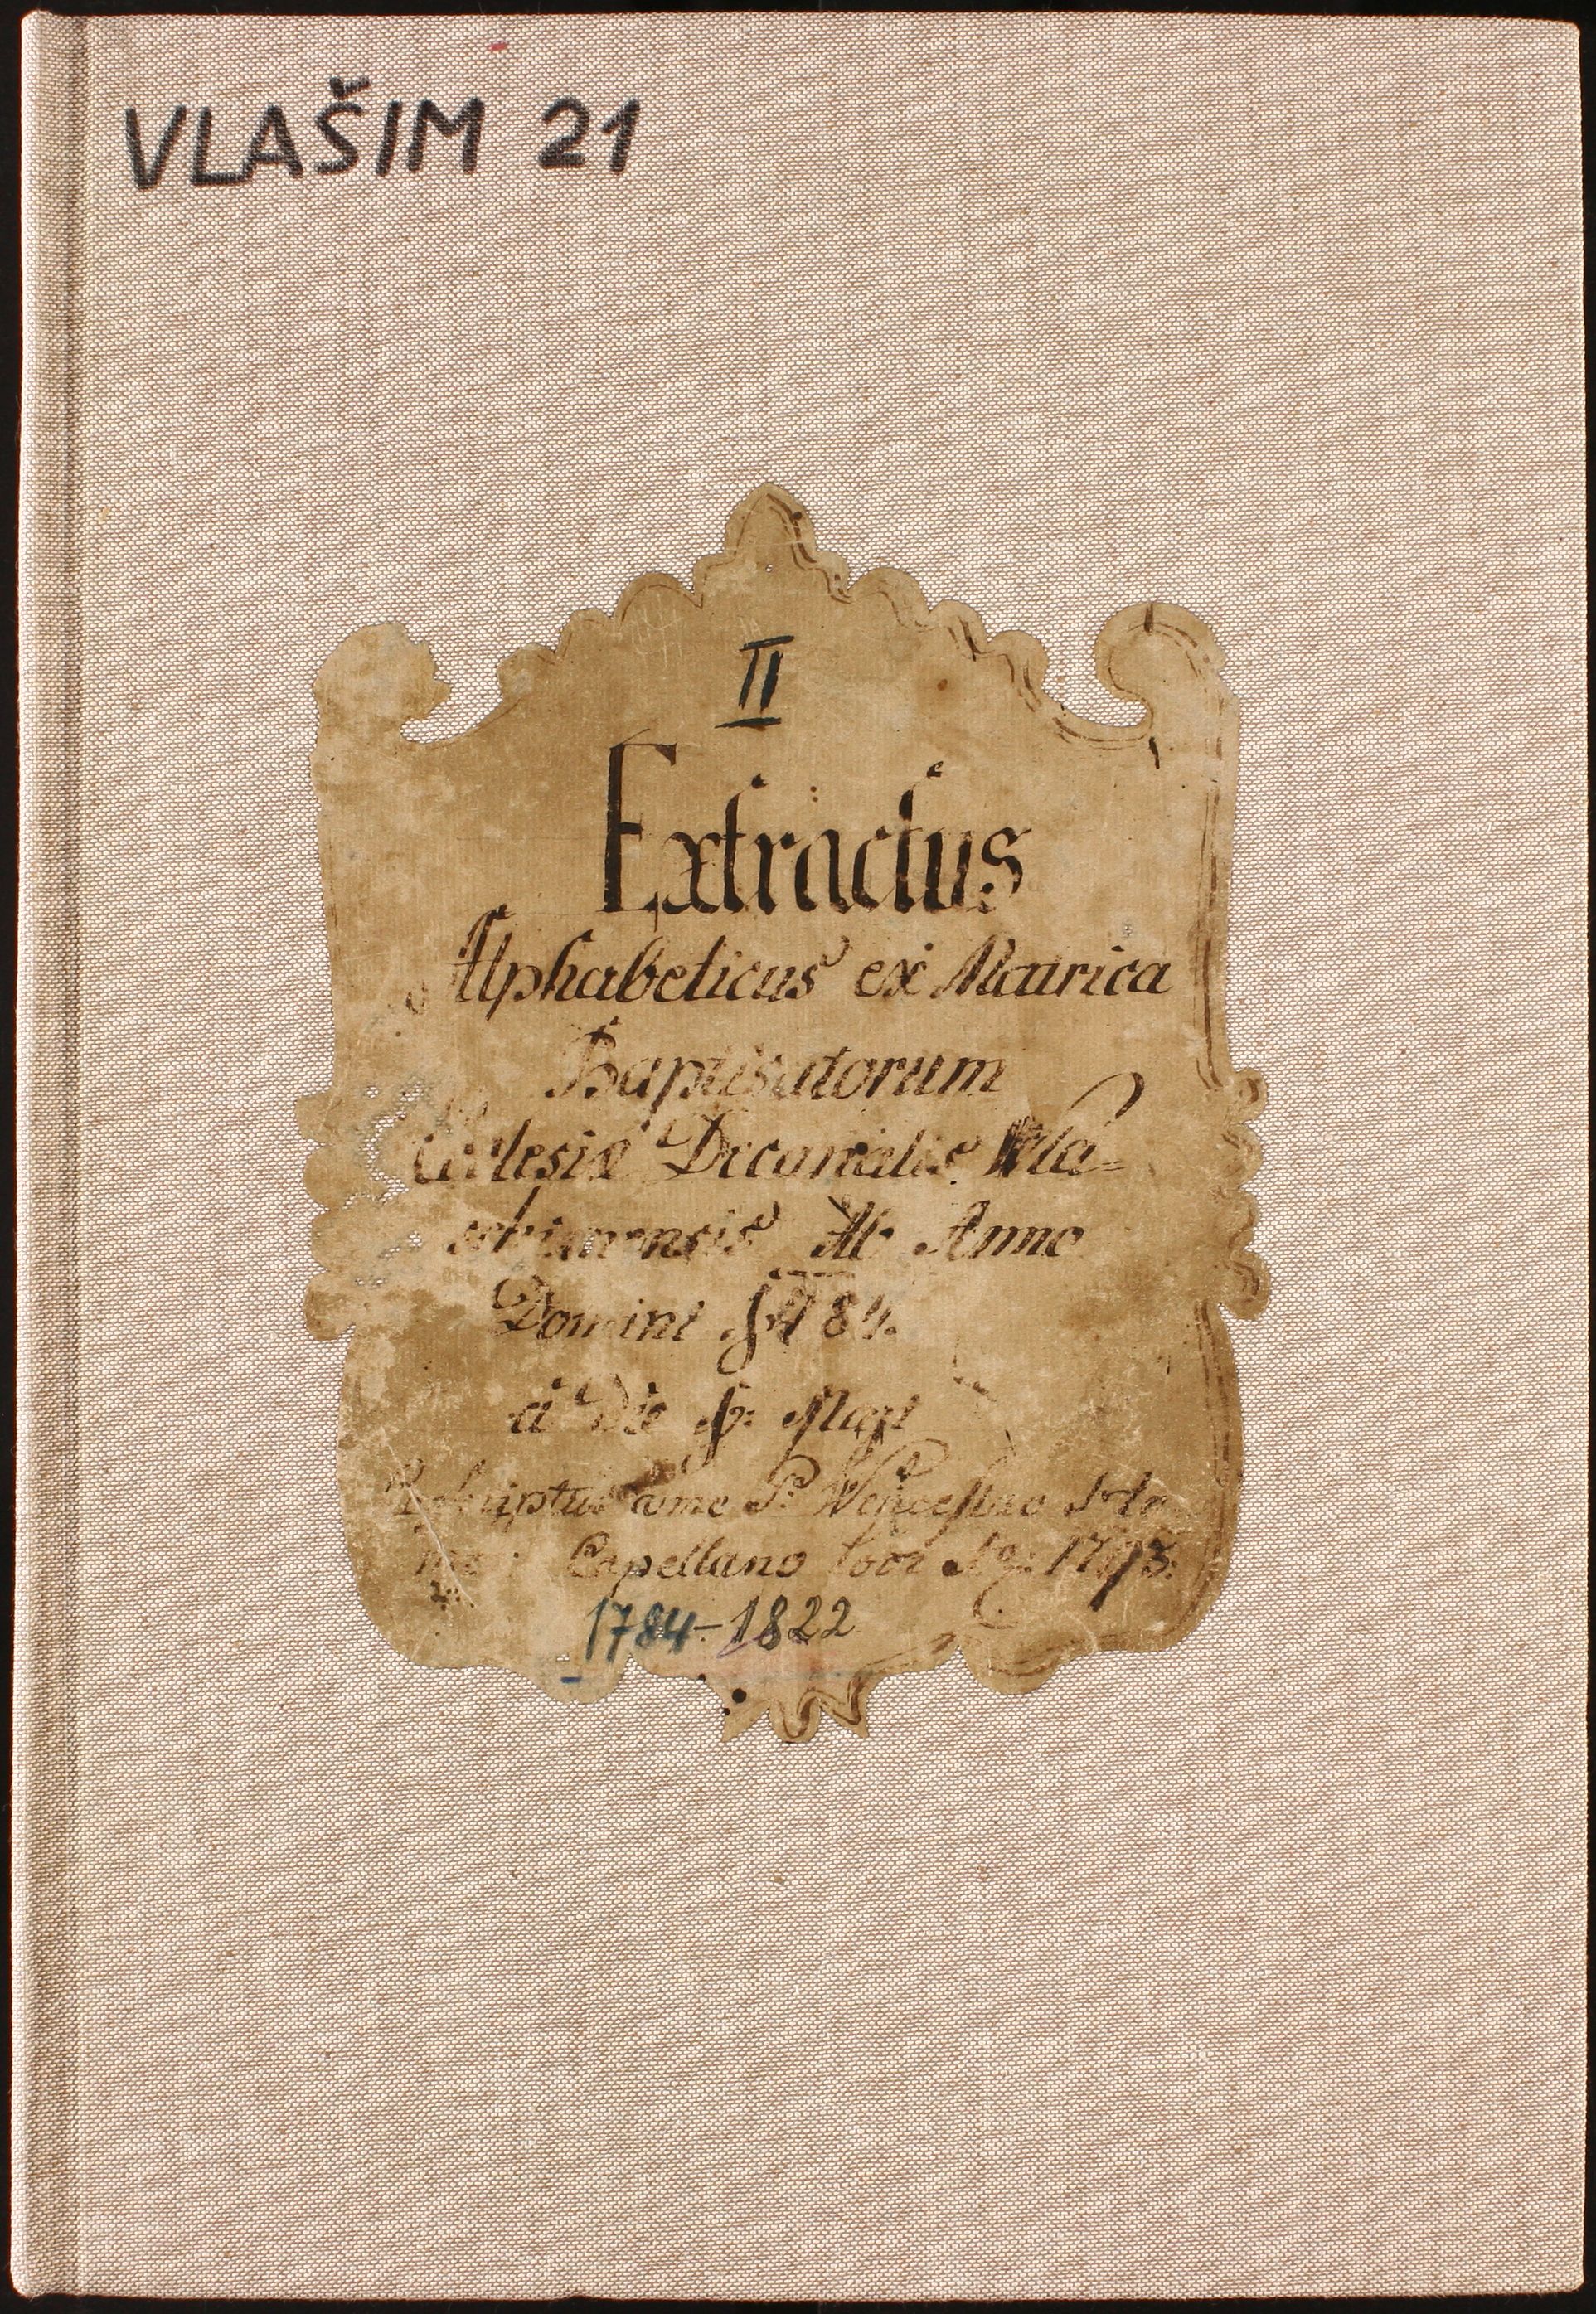 VLAŠIM 21
II
Extractus
Alphabeticus ex Matrica
Baptisatorum
Ecclesiæ Decanalis Wla=
schimensis Ab Anno
Domini 1784.
a Die Maji
a me P. Wenceslao
Capellano 1793.
1784-1822